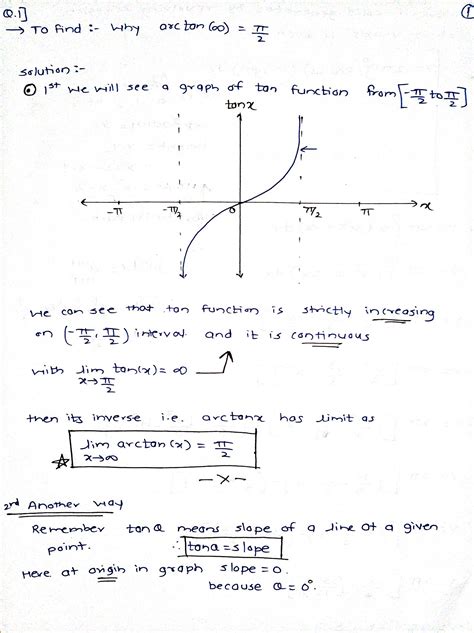 Q.1] ①
→ To find :- Why arctan(∞) = π/2
solution :-
⊙ 1st We will see a graph of tan function from [-π/2 to π/2]
tanx
-π -π/2 0 π/2 π x
We can see that tan function is strictly increasing
on (-π/2, π/2) interval and it is continuous
with lim x→π/2 tan(x) = ∞
then its inverse i.e. arctanx has limit as
☆ lim x→∞ arctan(x) = π/2
-x-
2nd Another way
Remember tanθ means slope of a line at a given
point. ∴ tanθ = slope
Here at origin in graph slope = 0.
because θ = 0°.